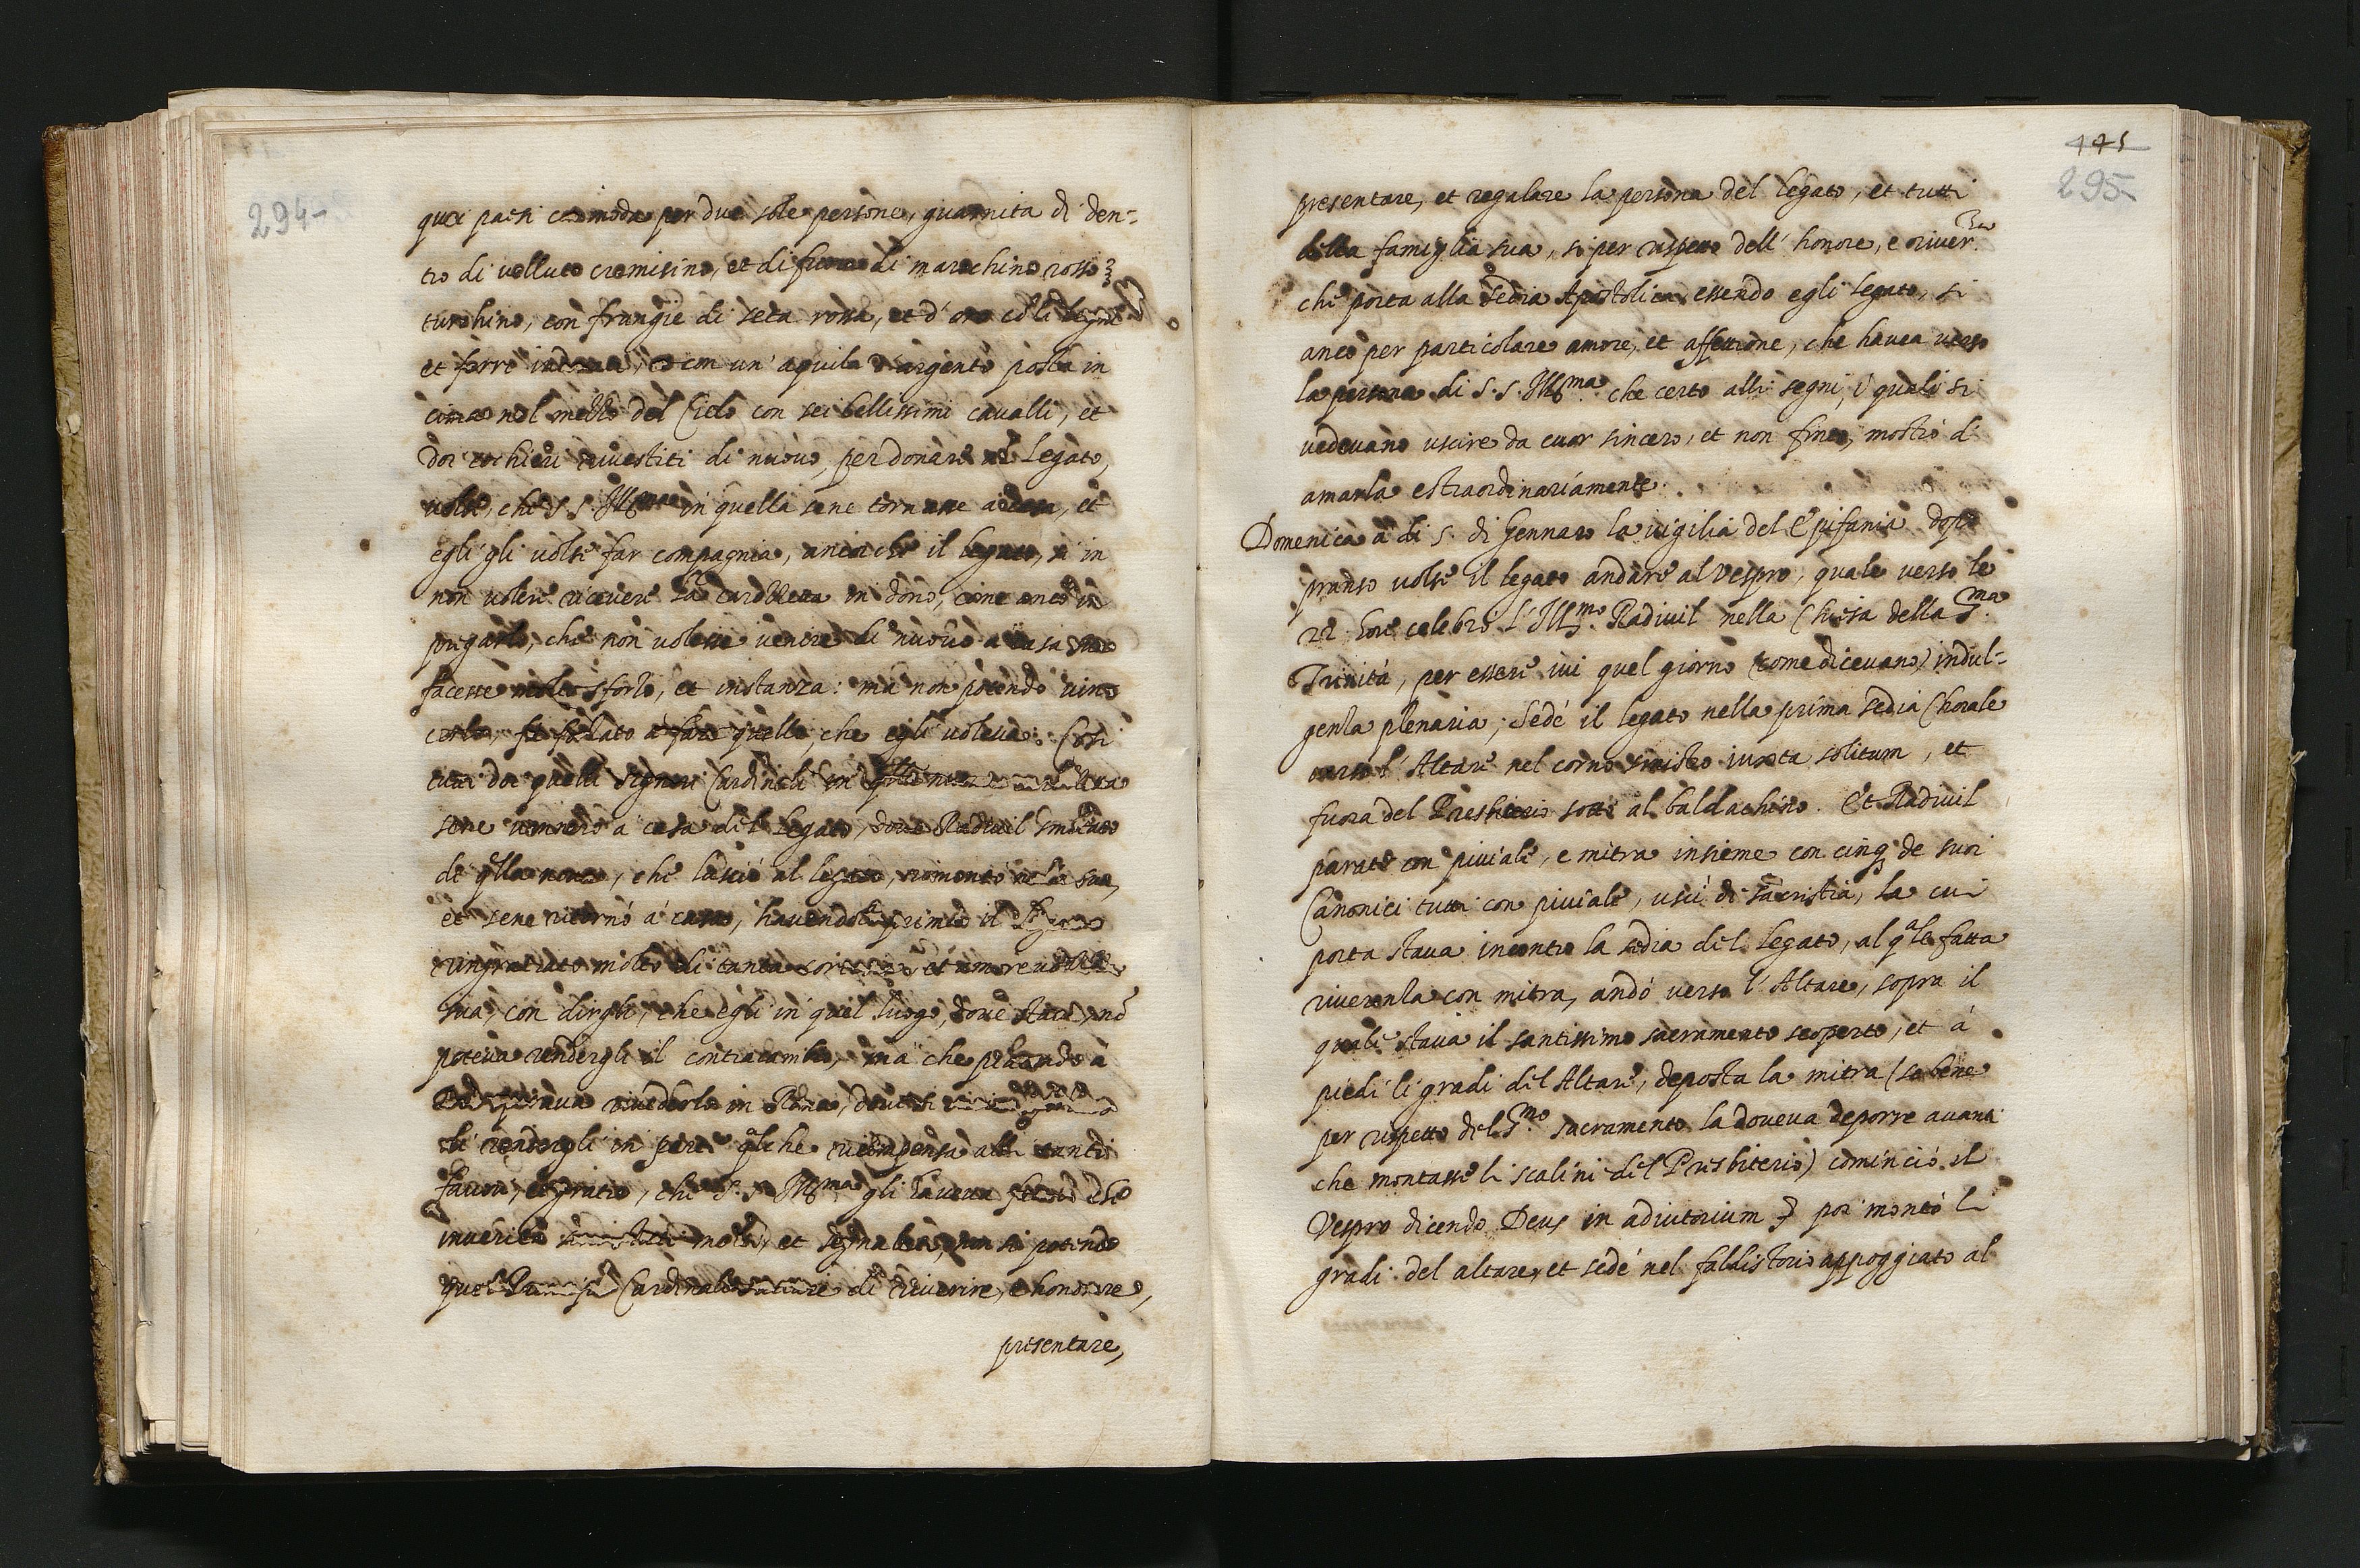 294-
quei paesi commoda per due sole persone, guarnita di den=
tro di velluto cremisino, et di fuora di marochino rosso, et
turchino, con frangie di seta rossa, et d'oro co' li legni
et ferri indorati, et con un' aquila d'argento posta in
cima nel mezzo del Cielo con sei bellissimi cavalli, et
doi cochieri rivestiti di nuovo, per donare al Legato,
volse, che S. S. Illma in quella sene tornasse a casa, et
egli gli volse far compagnia, ancor che il legato, sì in
non volere ricevere la carozza in dono, come anco in
pregarlo, che non volesse venire di nuovo a casa sua
facesse molto sforzo, et instanza: ma non potendo vin=
cerlo, fu forzato à fare quello, che egli voleva: Così
tutti doi quelli signori Cardinali in
sene vennero a casa del Legato, dove Radivil smontato
di qlla nova, che lasciò al legato, rimontò nela sua,
et sene ritornò a casa, havendolo prima il legato
ringratiato molto di tanta cortesia, et amorevolezza
sua, con dirgli, che egli in quel luogo, dove stava, nõ
poteva rendergli il contracambio, ma che piacendo à
Dio sperava rivederlo in Roma, dove si
di rendergli in parte qlche ricompensa alli tanti
favori, et gratie, che S. S. Illma gli haveva fatto che
inverità sono stati molti, et segnalati, non si potendo
quel Cardinale satiare di riverire, e honorare,
presentare,
295-
presentare, et regalare la persona del legato, et tutti
della famiglia sua, sì per rispetto dell' honore, e river.za
che porta alla sedia Apostolica, essendo egli legato, si
anco per particolare amore, et affettione, che havea verso
la persona di S. S. Illma. che certo alli segni, i quali si
vedevano uscire da cuor sincero, et non finto, mostrò di
amarla estraordinariamente.
Domenica à di 5. di Gennaro la vigilia del Epifania dopo
pranso volse il legato andare al Vespro, quale verso le
22. hore celebrò l'Illmo. Radivil nella Chiesa della Sma.
Trinità, per essere ivi quel giorno (come dicevano) indul=
genza plenaria; Sedé il legato nella prima sedia Chorale
verso l'Altare nel corno sinistro iuxta solitum, et
fuora del Presbiterio sotto al baldachino. Et Radivil
parato con piviale, e mitra insieme con cinq; de suoi
Canonici tutti con piviale, uscì di sacristia, la cui
porta stava incontro la sedia del legato, al qle fatta
riverenza con mitra, andò verso l'Altare, sopra il
quale stava il santissimo sacramento scoperto, et à
piedi li gradi del Altare, deposta la mitra (se bene
per rispetto del Smo. sacramento la doveva deporre avanti
che montasse li scalini del Presbiterio) cominciò il
Vespro dicendo Deus in adiutorium poi montò li
gradi del altare, et sedé nel faldistorio appoggiato al